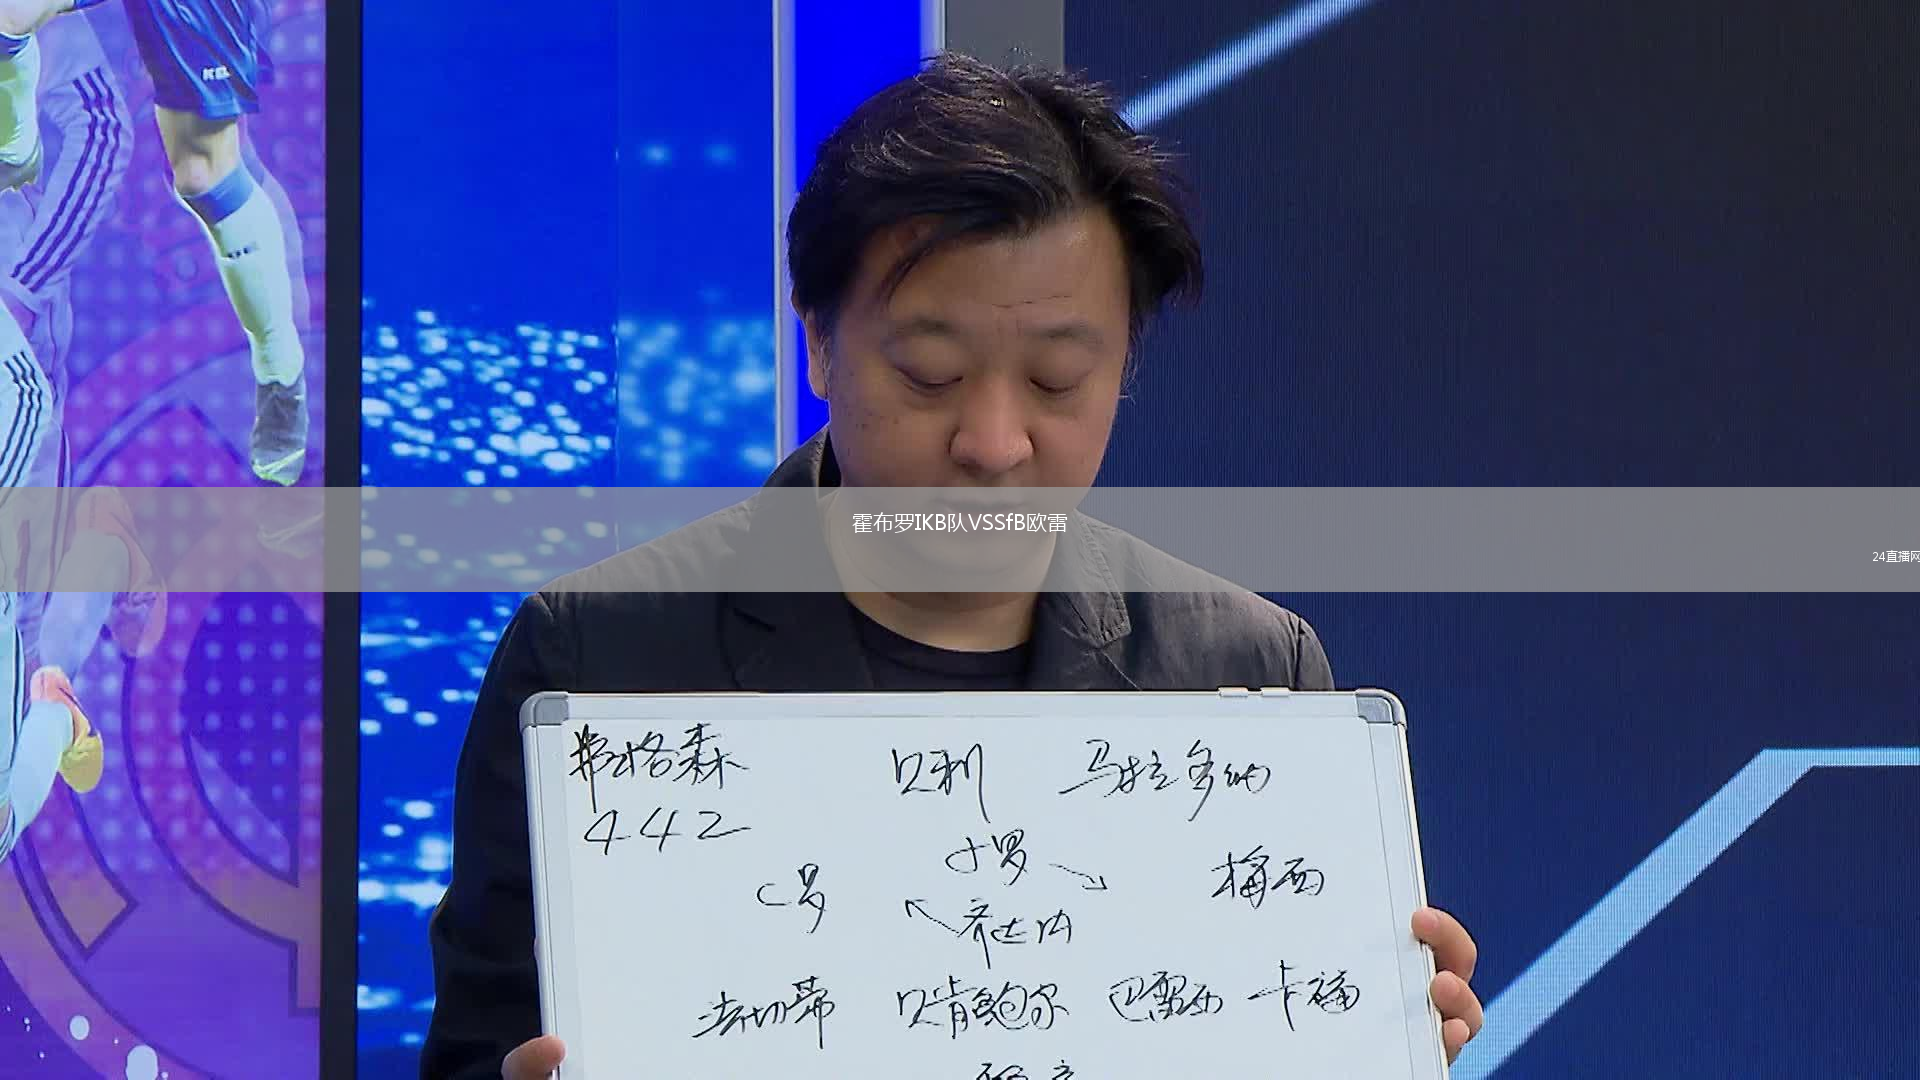 霍布罗IKB队VSSfB欧雷
24直播网
弗格森 贝利 马拉多纳
442
小罗
C罗 梅西
齐达内
法切蒂 贝肯鲍尔 巴雷西 卡福